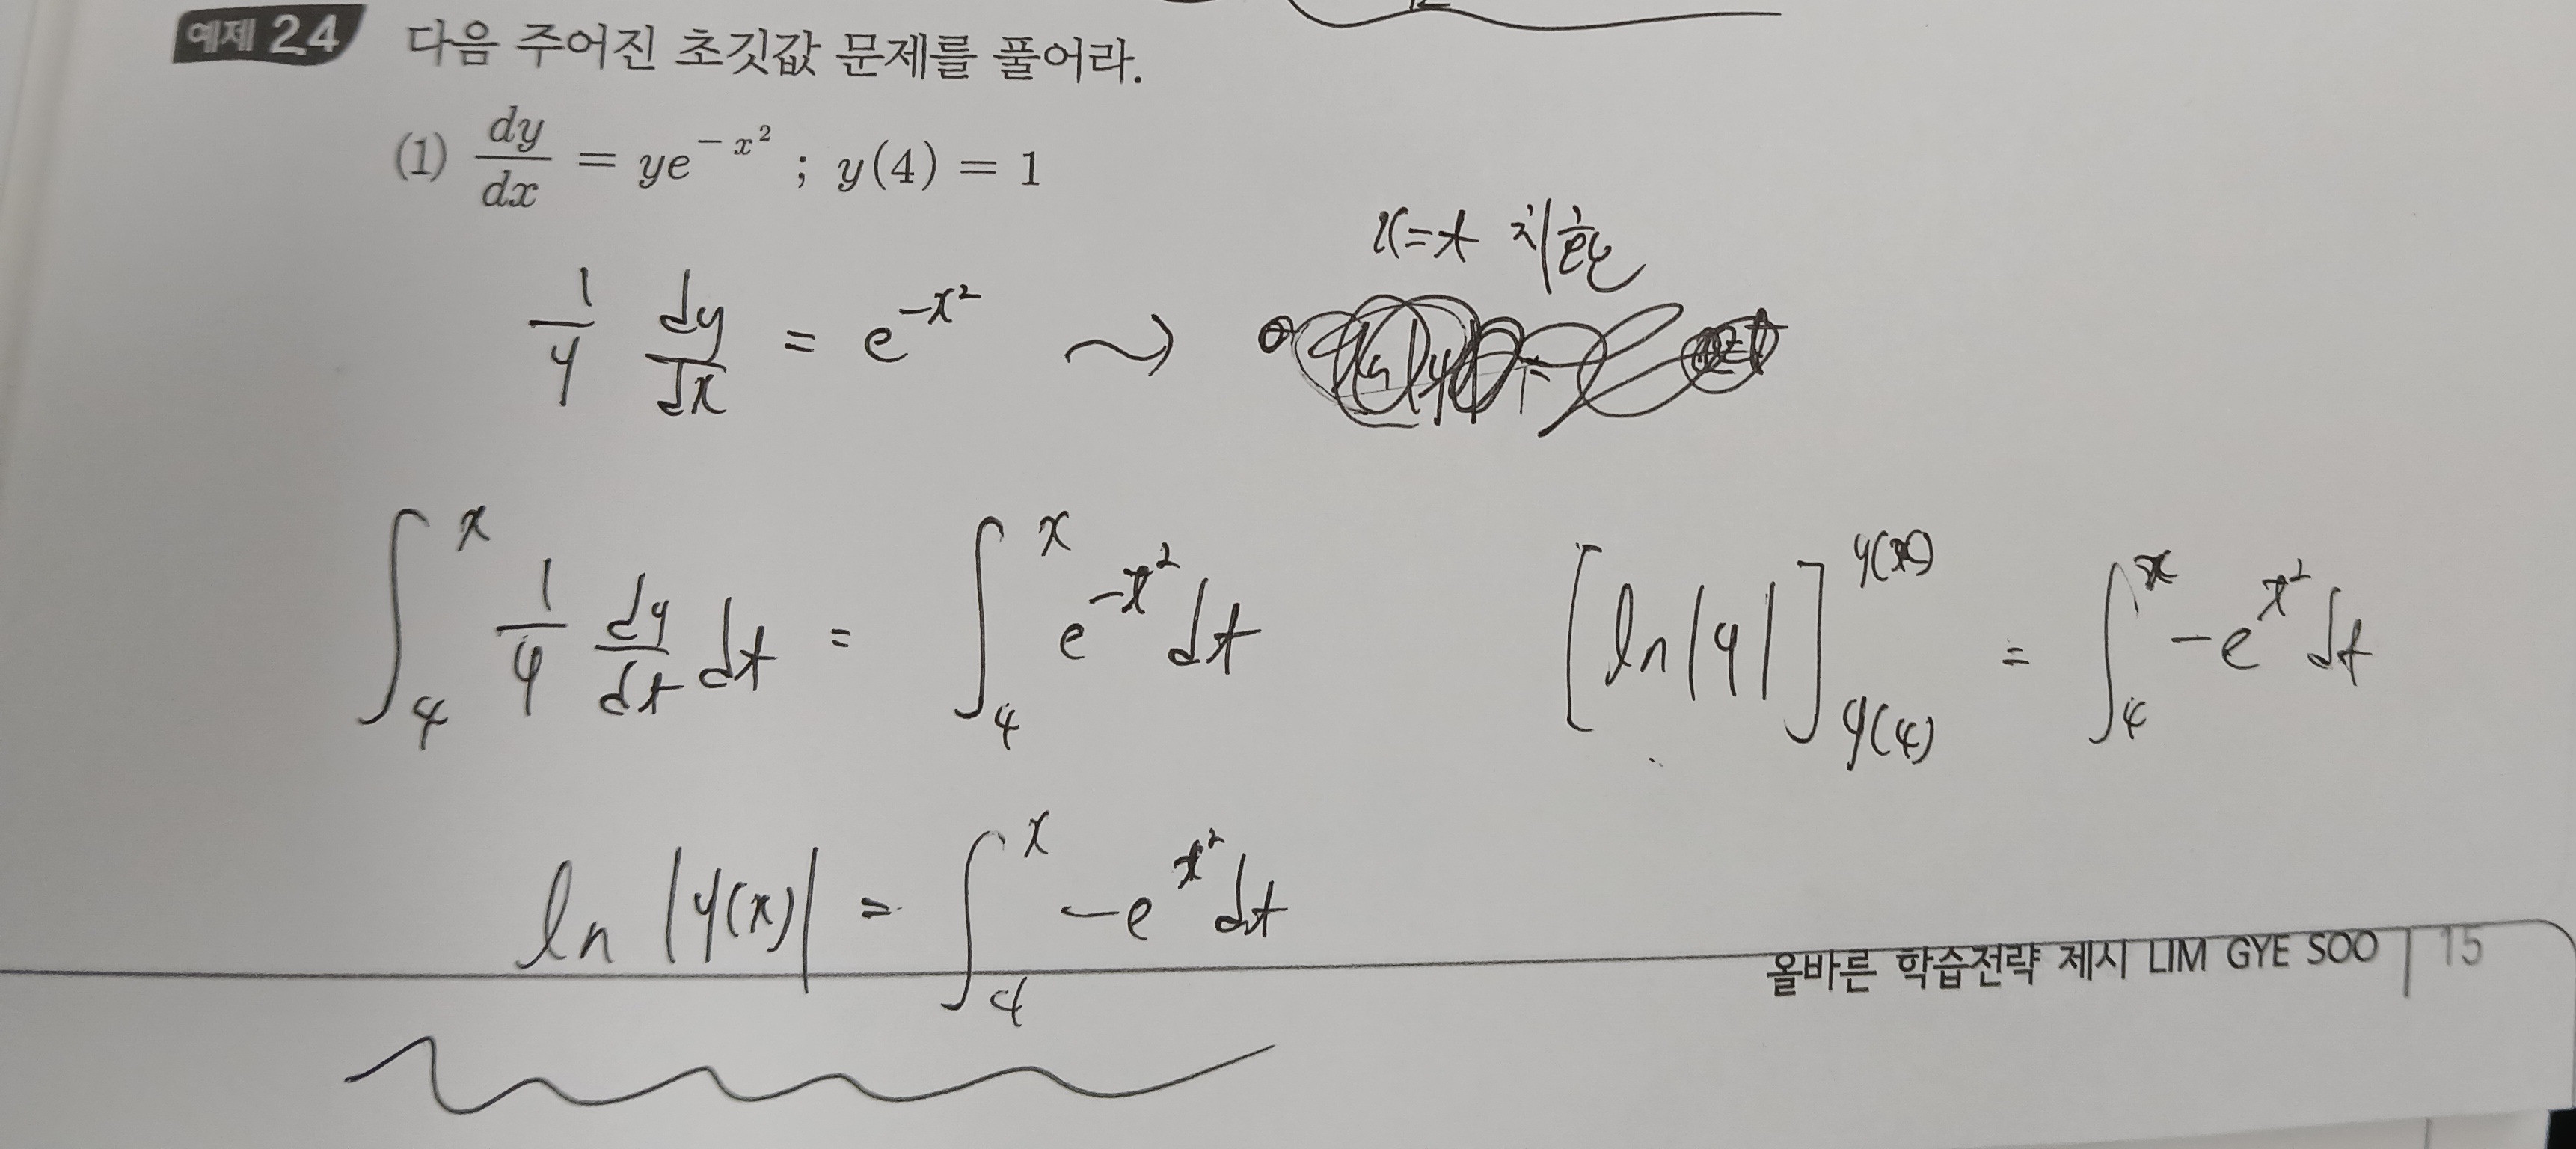 예제 2.4 다음 주어진 초깃값 문제를 풀어라.
(1) dy/dx = ye^{-x²} ; y(4) = 1
x=t 치환
1/y dy/dx = e^{-x²} ⇝
∫_4^x 1/y dy/dt dt = ∫_4^x e^{-t²} dt [ln|y|]_{y(4)}^{y(x)} = ∫_4^x -e^{t²} dt
ln |y(x)| = ∫_4^x -e^{t²} dt
올바른 학습전략 제시 LIM GYE SOO | 15